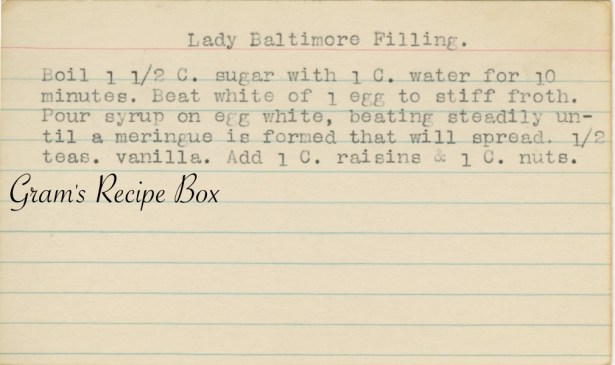 Lady Baltimore Filling.
Boil 1 1/2 C. sugar with 1 C. water for 10
minutes. Beat white of 1 egg to stiff froth.
Pour syrup on egg white, beating steadily un-
til a meringue is formed that will spread. 1/2
teas. vanilla. Add 1 C. raisins & 1 C. nuts.
Gram's Recipe Box